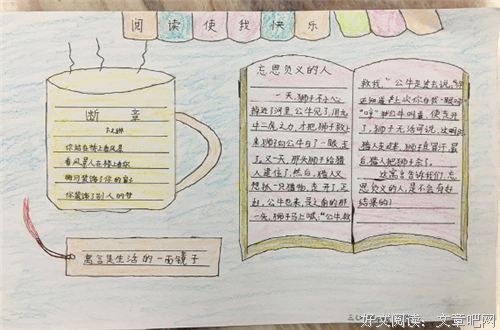 阅读使我快乐
断章
卞之琳
你站在桥上看风景
看风景人在楼上看你
明月装饰了你的窗子
你装饰了别人的梦
寓言是生活的一面镜子
忘恩负义的人
一天,狮子不小心
掉进了河里,公牛见了,用九
牛二虎之力,才把狮子救上
来,狮子向公牛白了一眼,走
了。又一天,那头狮子给猎
人逮住了,然后,猎人又
想抓一只猎物,走开了,正
公牛也来,是之前的那
一头,狮子马上喊:“公牛,救
救我,”公牛走过去说:“你
还知道
“哼”那公牛叫着,快走开
了,狮子无话可说,这时,
猎人走过来,狮子直冒汗,最
后,猎人把狮子杀了。
这寓言告诉我们,忘
恩负义的人,是不会有好
结果的!
好文阅读:文章吧网